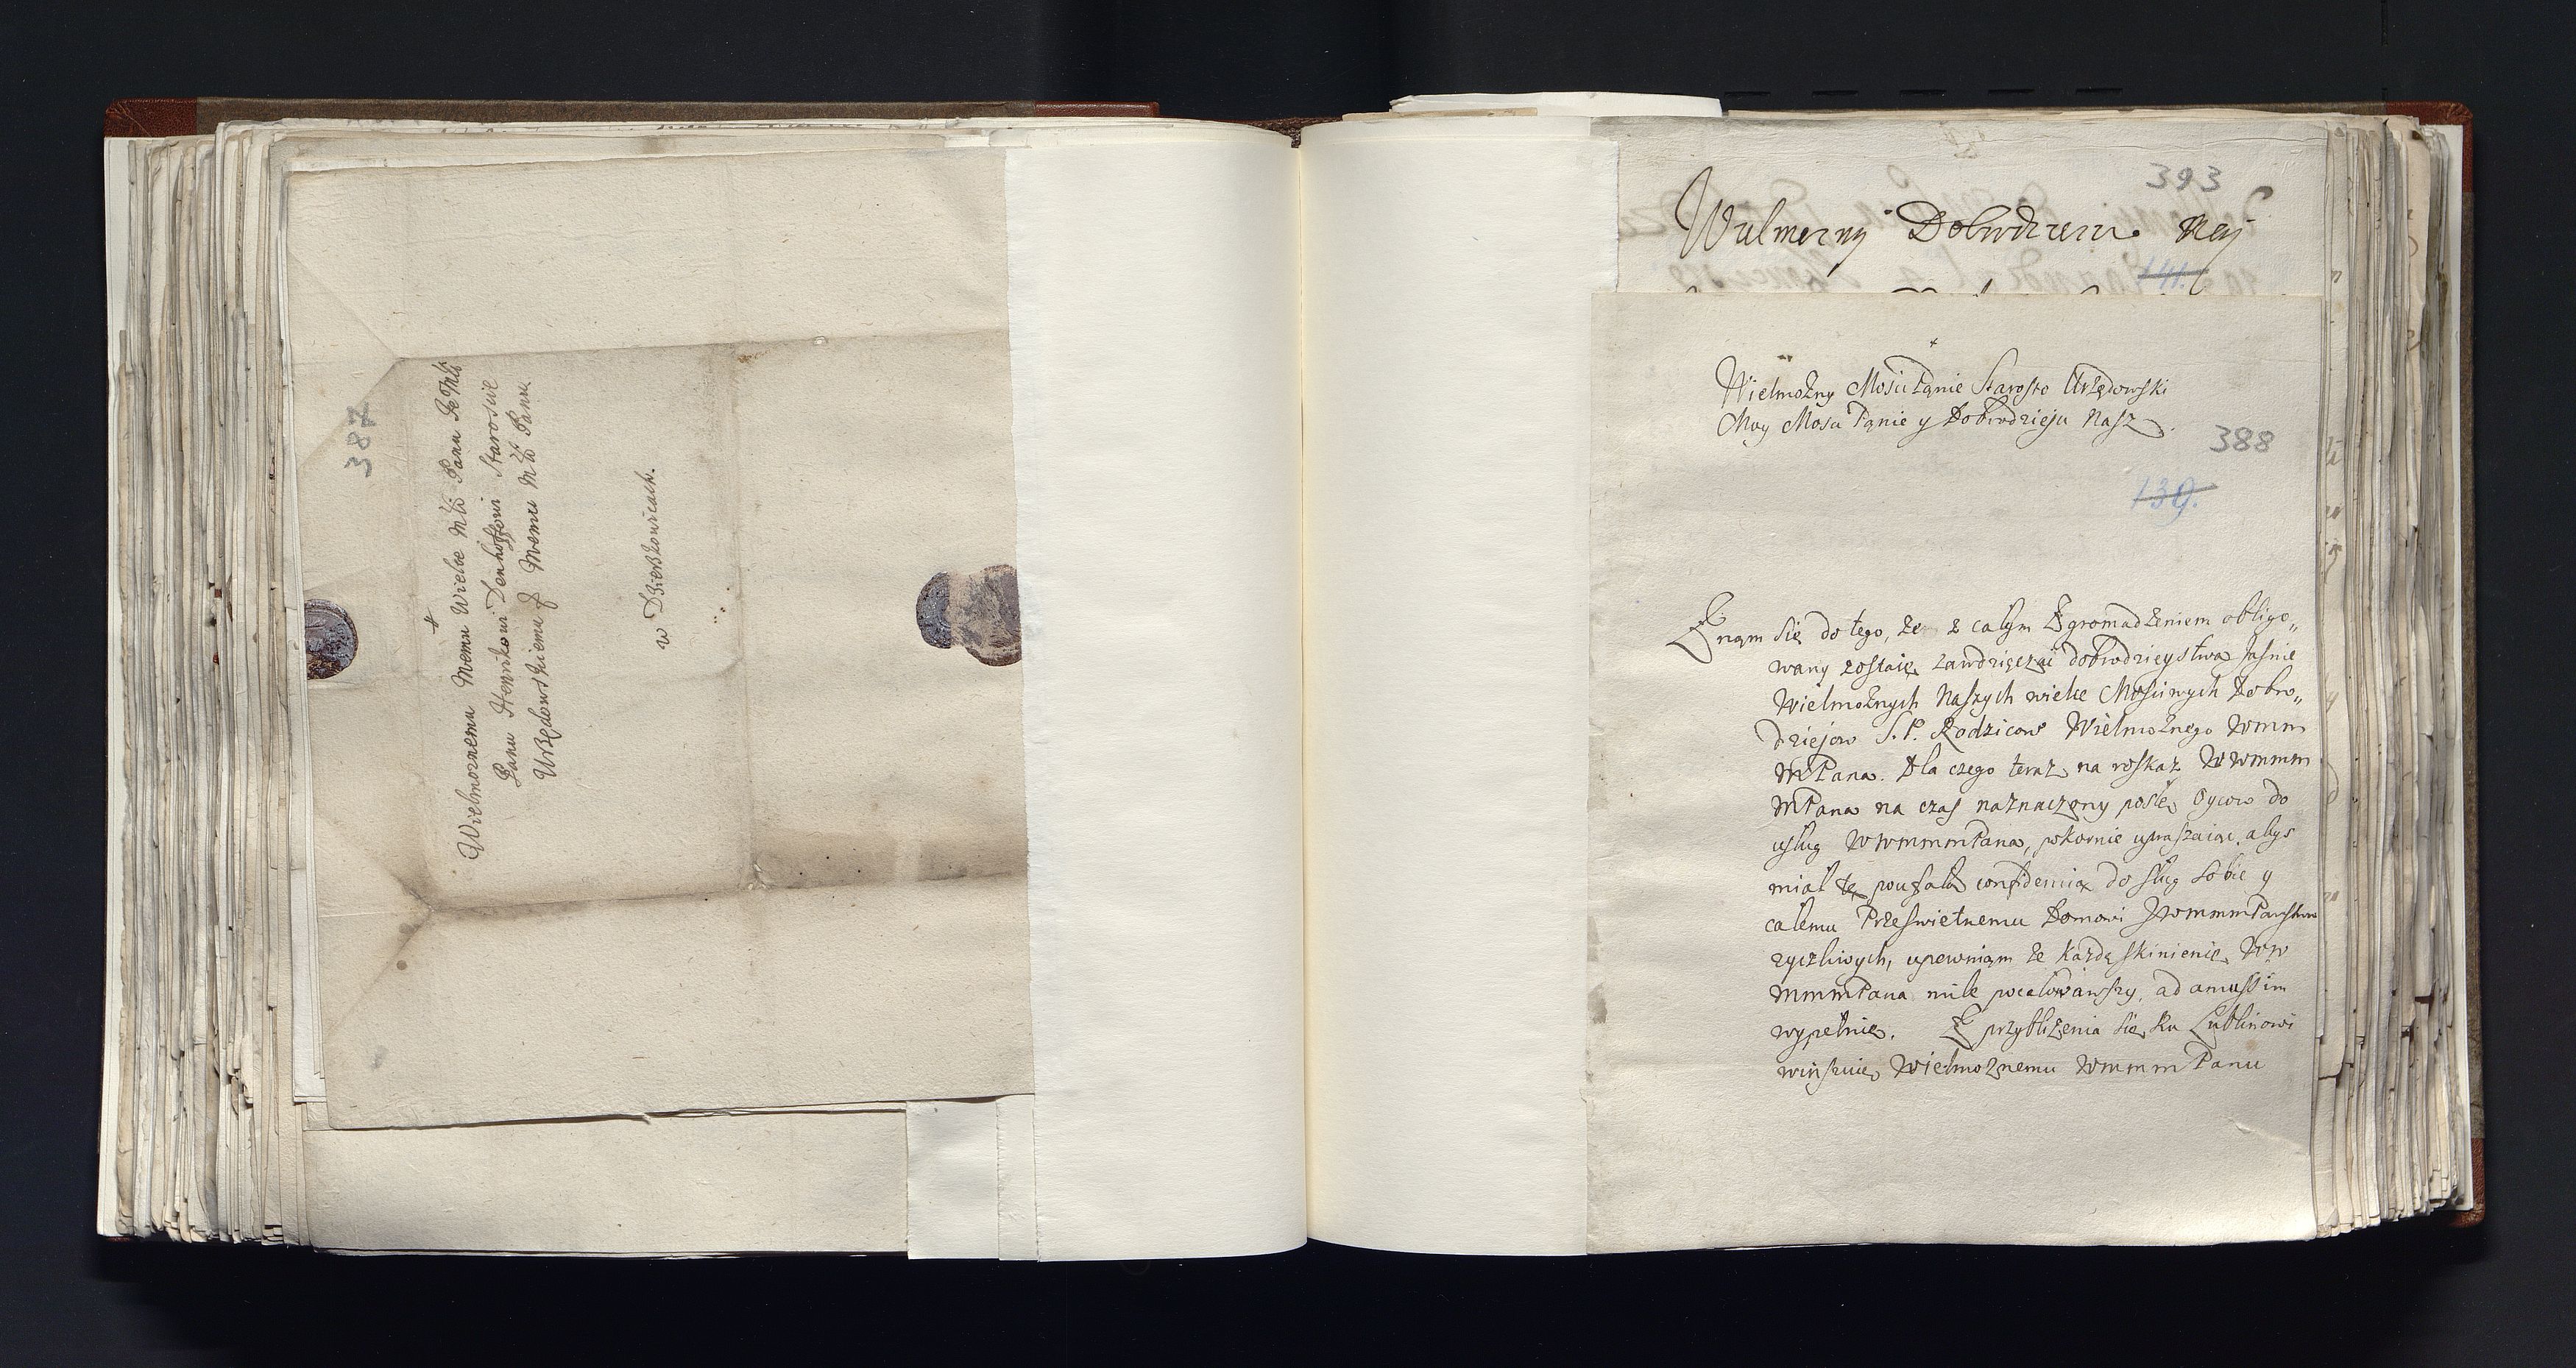 387
Wielmoznemu Memu Wielce Mśći Panu Je Mśći
Panu Henrikowi Denhoffowi Starosćie
Urzędowskiemu Memu Mśći Panu
w Dzierzkowicach.
393
Wielmozny Dobrodzieiu Mey
141.
Wielmożny Mosći Panie Starosto Urzędowski
Moy Mosci Panie y Dobrodzieju Nasz.
388
139.
Znąm się do tego, że z całym Zgromadzeniem obligo„
wany zostaię zawdzięczać dobrodzieystwa Jasnie
Wielmożnych Naszych wielce Mosciwych Dobro„
dziejow S. P. Rodzicow Wielmożnego Wmm
MPana. Dla czego teraz na roskaz WWmmm
MPana na czas naznaczony poslę Oycow do
usług WWmmmPana, pokornie upraszaiąc, abys
miał tę poufałą confidencią do sług sobie y
całemu Przeswietnemu Domowi JWmmmPanstwa
zyczliwych, upewniąm że każdę skinienie WW
MmmPana mile pocałowawszy, ad amussim
wypełnię. Z przybliżenia się ku Lublinowi
winszuię Wielmożnemu Wmmm Panu